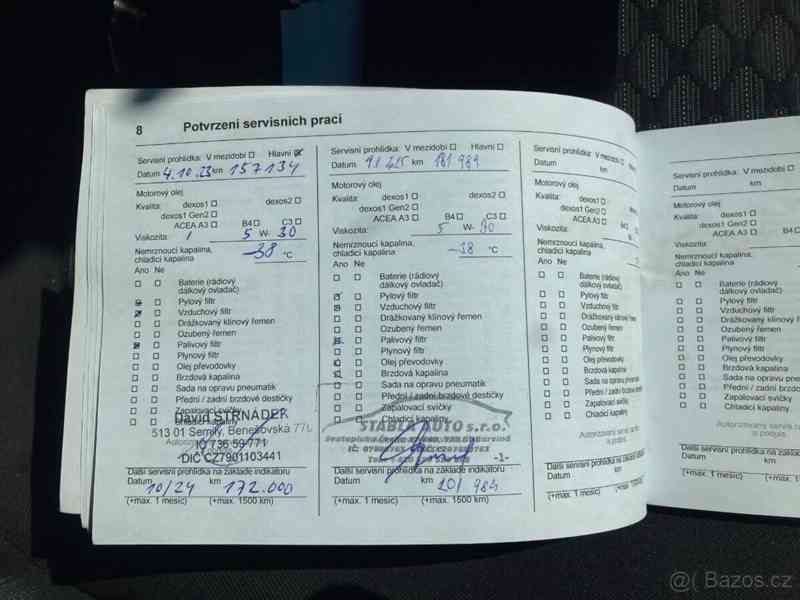 8 Potvrzení servisních prací
Servisní prohlídka: V mezidobí ☐ Hlavní ☒
Datum 4.10.23 km 157134
Motorový olej
Kvalita: dexos1 ☐ dexos2 ☐
dexos1 Gen2 ☐
ACEA A3 ☐ B4 ☐ C3 ☐
Viskozita: 5 W- 30
Nemrznoucí kapalina,
chladicí kapalina -38 °C
Ano Ne
Baterie (rádiový
dálkový ovladač)
Pylový filtr
Vzduchový filtr
Drážkovaný klínový řemen
Ozubený řemen
Palivový filtr
Plynový filtr
Olej převodovky
Brzdová kapalina
Sada na opravu pneumatik
Přední / zadní brzdové destičky
Zapalovací svíčky
Chladicí kapaliny
David STRNÁDEK
513 01 Semily, Benešovská
IČ 736 59 771
DIČ CZ7901103441
Další servisní prohlídka na základě indikátoru
Datum 10/24 km 172.000
(+max. 1 měsíc) (+max. 1500 km)
Servisní prohlídka: V mezidobí ☐ Hlavní ☐
Datum km 181 989
Motorový olej
Kvalita: dexos1 ☐ dexos2 ☐
dexos1 Gen2 ☐
ACEA A3 ☐ B4 ☐ C3 ☐
Viskozita: 5 W-
Nemrznoucí kapalina,
chladicí kapalina -38 °C
Ano Ne
Baterie (rádiový
dálkový ovladač)
Pylový filtr
Vzduchový filtr
Drážkovaný klínový řemen
Ozubený řemen
Palivový filtr
Plynový filtr
Olej převodovky
Brzdová kapalina
Sada na opravu pneumatik
Přední / zadní brzdové destičky
Zapalovací svíčky
Chladicí kapaliny
STABLA AUTO s.r.o.
-1-
Další servisní prohlídka na základě indikátoru
Datum km 201 984
(+max. 1 měsíc) (+max. 1500 km)
Servisní prohlídka: V mezidobí ☐
Datum km
Motorový olej
Kvalita: dexos1 ☐
dexos1 Gen2 ☐
ACEA A3 ☐
Viskozita:
Nemrznoucí kapalina,
chladicí kapalina
Ano Ne
Baterie (rádiový
dálkový ovladač)
Pylový filtr
Vzduchový filtr
Drážkovaný klínový řemen
Ozubený řemen
Palivový filtr
Plynový filtr
Olej převodovky
Brzdová kapalina
Sada na opravu
Přední / zadní
Zapalovací svíčky
Chladicí kapaliny
Autorizovaný
Další servisní prohlídka na
Datum
(+max. 1 měsíc)
Servisní prohlídka: V mezidobí ☐
Datum km
Motorový olej
Kvalita: dexos1 ☐
dexos1 Gen2 ☐
ACEA A3 ☐ B4
Viskozita:
Nemrznoucí kapalina,
chladicí kapalina
Ano Ne
Baterie (rádiový
dálkový ovladač)
Pylový filtr
Vzduchový filtr
Drážkovaný klínový
Ozubený řemen
Palivový filtr
Plynový filtr
Olej převodovky
Brzdová kapalina
Sada na opravu
Přední / zadní
Zapalovací svíčky
Chladicí kapaliny
Autorizovaný servis
a podpis
Další servisní prohlídka na
Datum km
(+max. 1 měsíc)
@( Bazos.cz